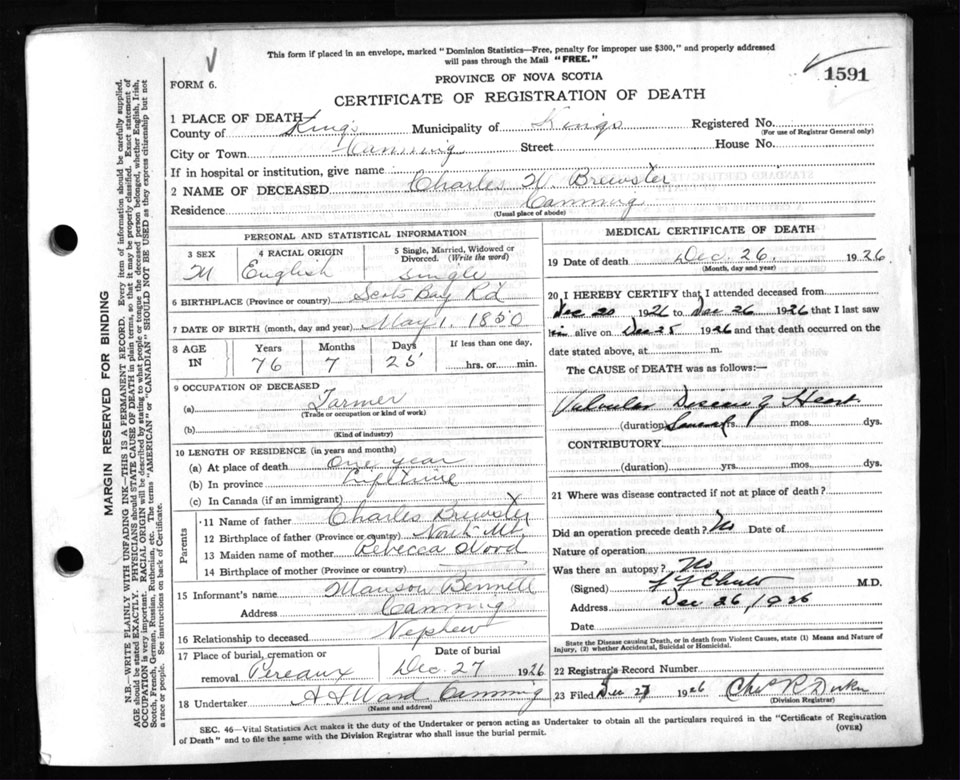 This form if placed in an envelope, marked "Dominion Statistics—Free, penalty for improper use $300," and properly addressed
will pass through the Mail "FREE."
FORM 6.
PROVINCE OF NOVA SCOTIA
1591
CERTIFICATE OF REGISTRATION OF DEATH
1 PLACE OF DEATH—
County of Kings Municipality of Kings Registered No.
(For use of Registrar General only)
City or Town Canning Street House No.
If in hospital or institution, give name
2 NAME OF DECEASED Charles W. Brewster
Residence Canning
(Usual place of abode)
PERSONAL AND STATISTICAL INFORMATION
3 SEX 4 RACIAL ORIGIN 5 Single, Married, Widowed or Divorced. (Write the word)
M English Single
6 BIRTHPLACE (Province or country) Scots Bay Rd
7 DATE OF BIRTH (month, day and year) May 1. 1850
8 AGE IN Years Months Days If less than one day,
76 7 25 hrs. or min.
9 OCCUPATION OF DECEASED
(a) Farmer
(Trade or occupation or kind of work)
(b)
(Kind of industry)
10 LENGTH OF RESIDENCE (in years and months)
(a) At place of death One year
(b) In province Lifetime
(c) In Canada (if an immigrant)
Parents
11 Name of father Charles Brewster
12 Birthplace of father (Province or country) North Mt
13 Maiden name of mother Rebecca Wood
14 Birthplace of mother (Province or country)
15 Informant's name Manson Bennett
Address Canning
16 Relationship to deceased Nephew
17 Place of burial, cremation or removal Pereaux
Date of burial Dec. 27 1926
18 Undertaker Ward Canning
(Name and address)
MEDICAL CERTIFICATE OF DEATH
19 Date of death Dec. 26. 1926
(Month, day and year)
20 I HEREBY CERTIFY that I attended deceased from
Dec 20 1926 to Dec 26 1926 that I last saw
him alive on Dec 25 1926 and that death occurred on the
date stated above, at m.
The CAUSE OF DEATH was as follows:—
Valvular Disease of Heart
(duration) Several yrs. mos. dys.
CONTRIBUTORY
(duration) yrs. mos. dys.
21 Where was disease contracted if not at place of death?
Did an operation precede death? No Date of
Nature of operation
Was there an autopsy? No
(Signed) M.D.
Address Dec 26/1926
Date
State the Disease causing Death, or in death from Violent Causes, state (1) Means and Nature of
Injury, (2) whether Accidental, Suicidal or Homicidal.
22 Registrar's Record Number
23 Filed Dec 27 1926 R
(Division Registrar)
SEC. 46—Vital Statistics Act makes it the duty of the Undertaker or person acting as Undertaker to obtain all the particulars required in the "Certificate of Registration
of Death" and to file the same with the Division Registrar who shall issue the burial permit.
(OVER)
MARGIN RESERVED FOR BINDING
N.B.—WRITE PLAINLY WITH UNFADING INK—THIS IS A PERMANENT RECORD. Every item of information should be carefully supplied.
AGE should be stated EXACTLY. PHYSICIANS should STATE CAUSE OF DEATH in plain terms, so that it may be properly classified. Exact statement of
OCCUPATION is very important. RACIAL ORIGIN will be described by stating to what people or tongue the deceased person belonged, whether English, Irish,
Scotch, French, German, Russian, Ruthenian, etc. The terms "AMERICAN" or "CANADIAN" SHOULD NOT BE USED as they express citizenship but not
a race or people. See instructions on back of Certificate.